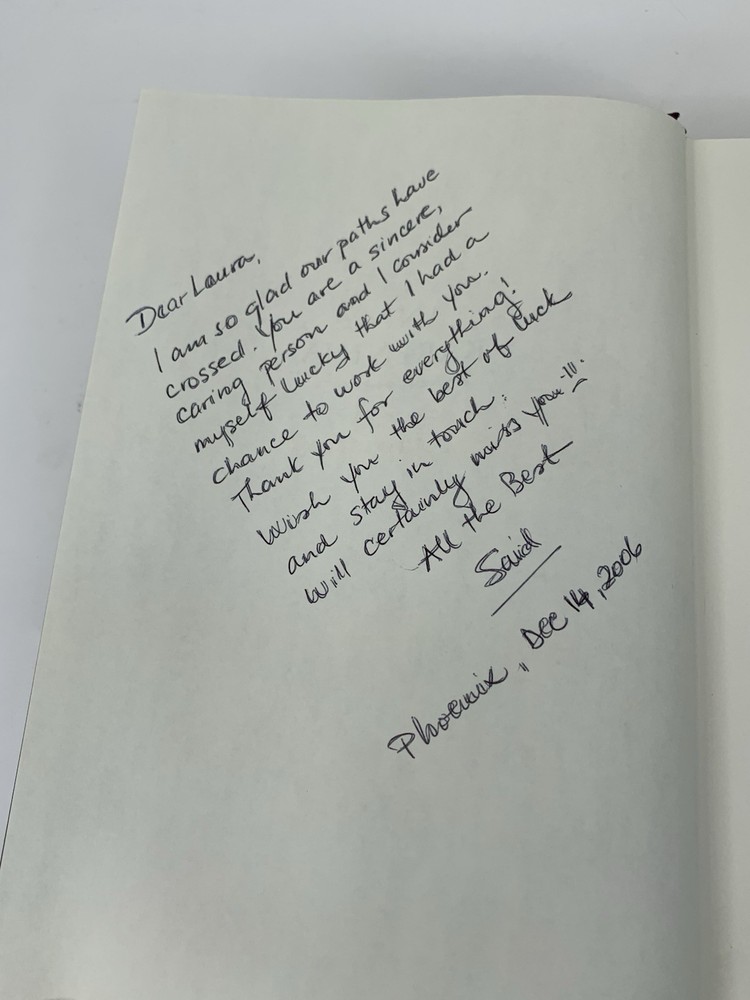 Dear Laura,
I am so glad our paths have
crossed. You are a sincere,
caring person and I consider
myself lucky that I had a
chance to work with you.
Thank you for everything!
Wish you the best of luck
and stay in touch.
Will certainly miss you!!!
All the Best
Said
Phoenix, Dec 14, 2006